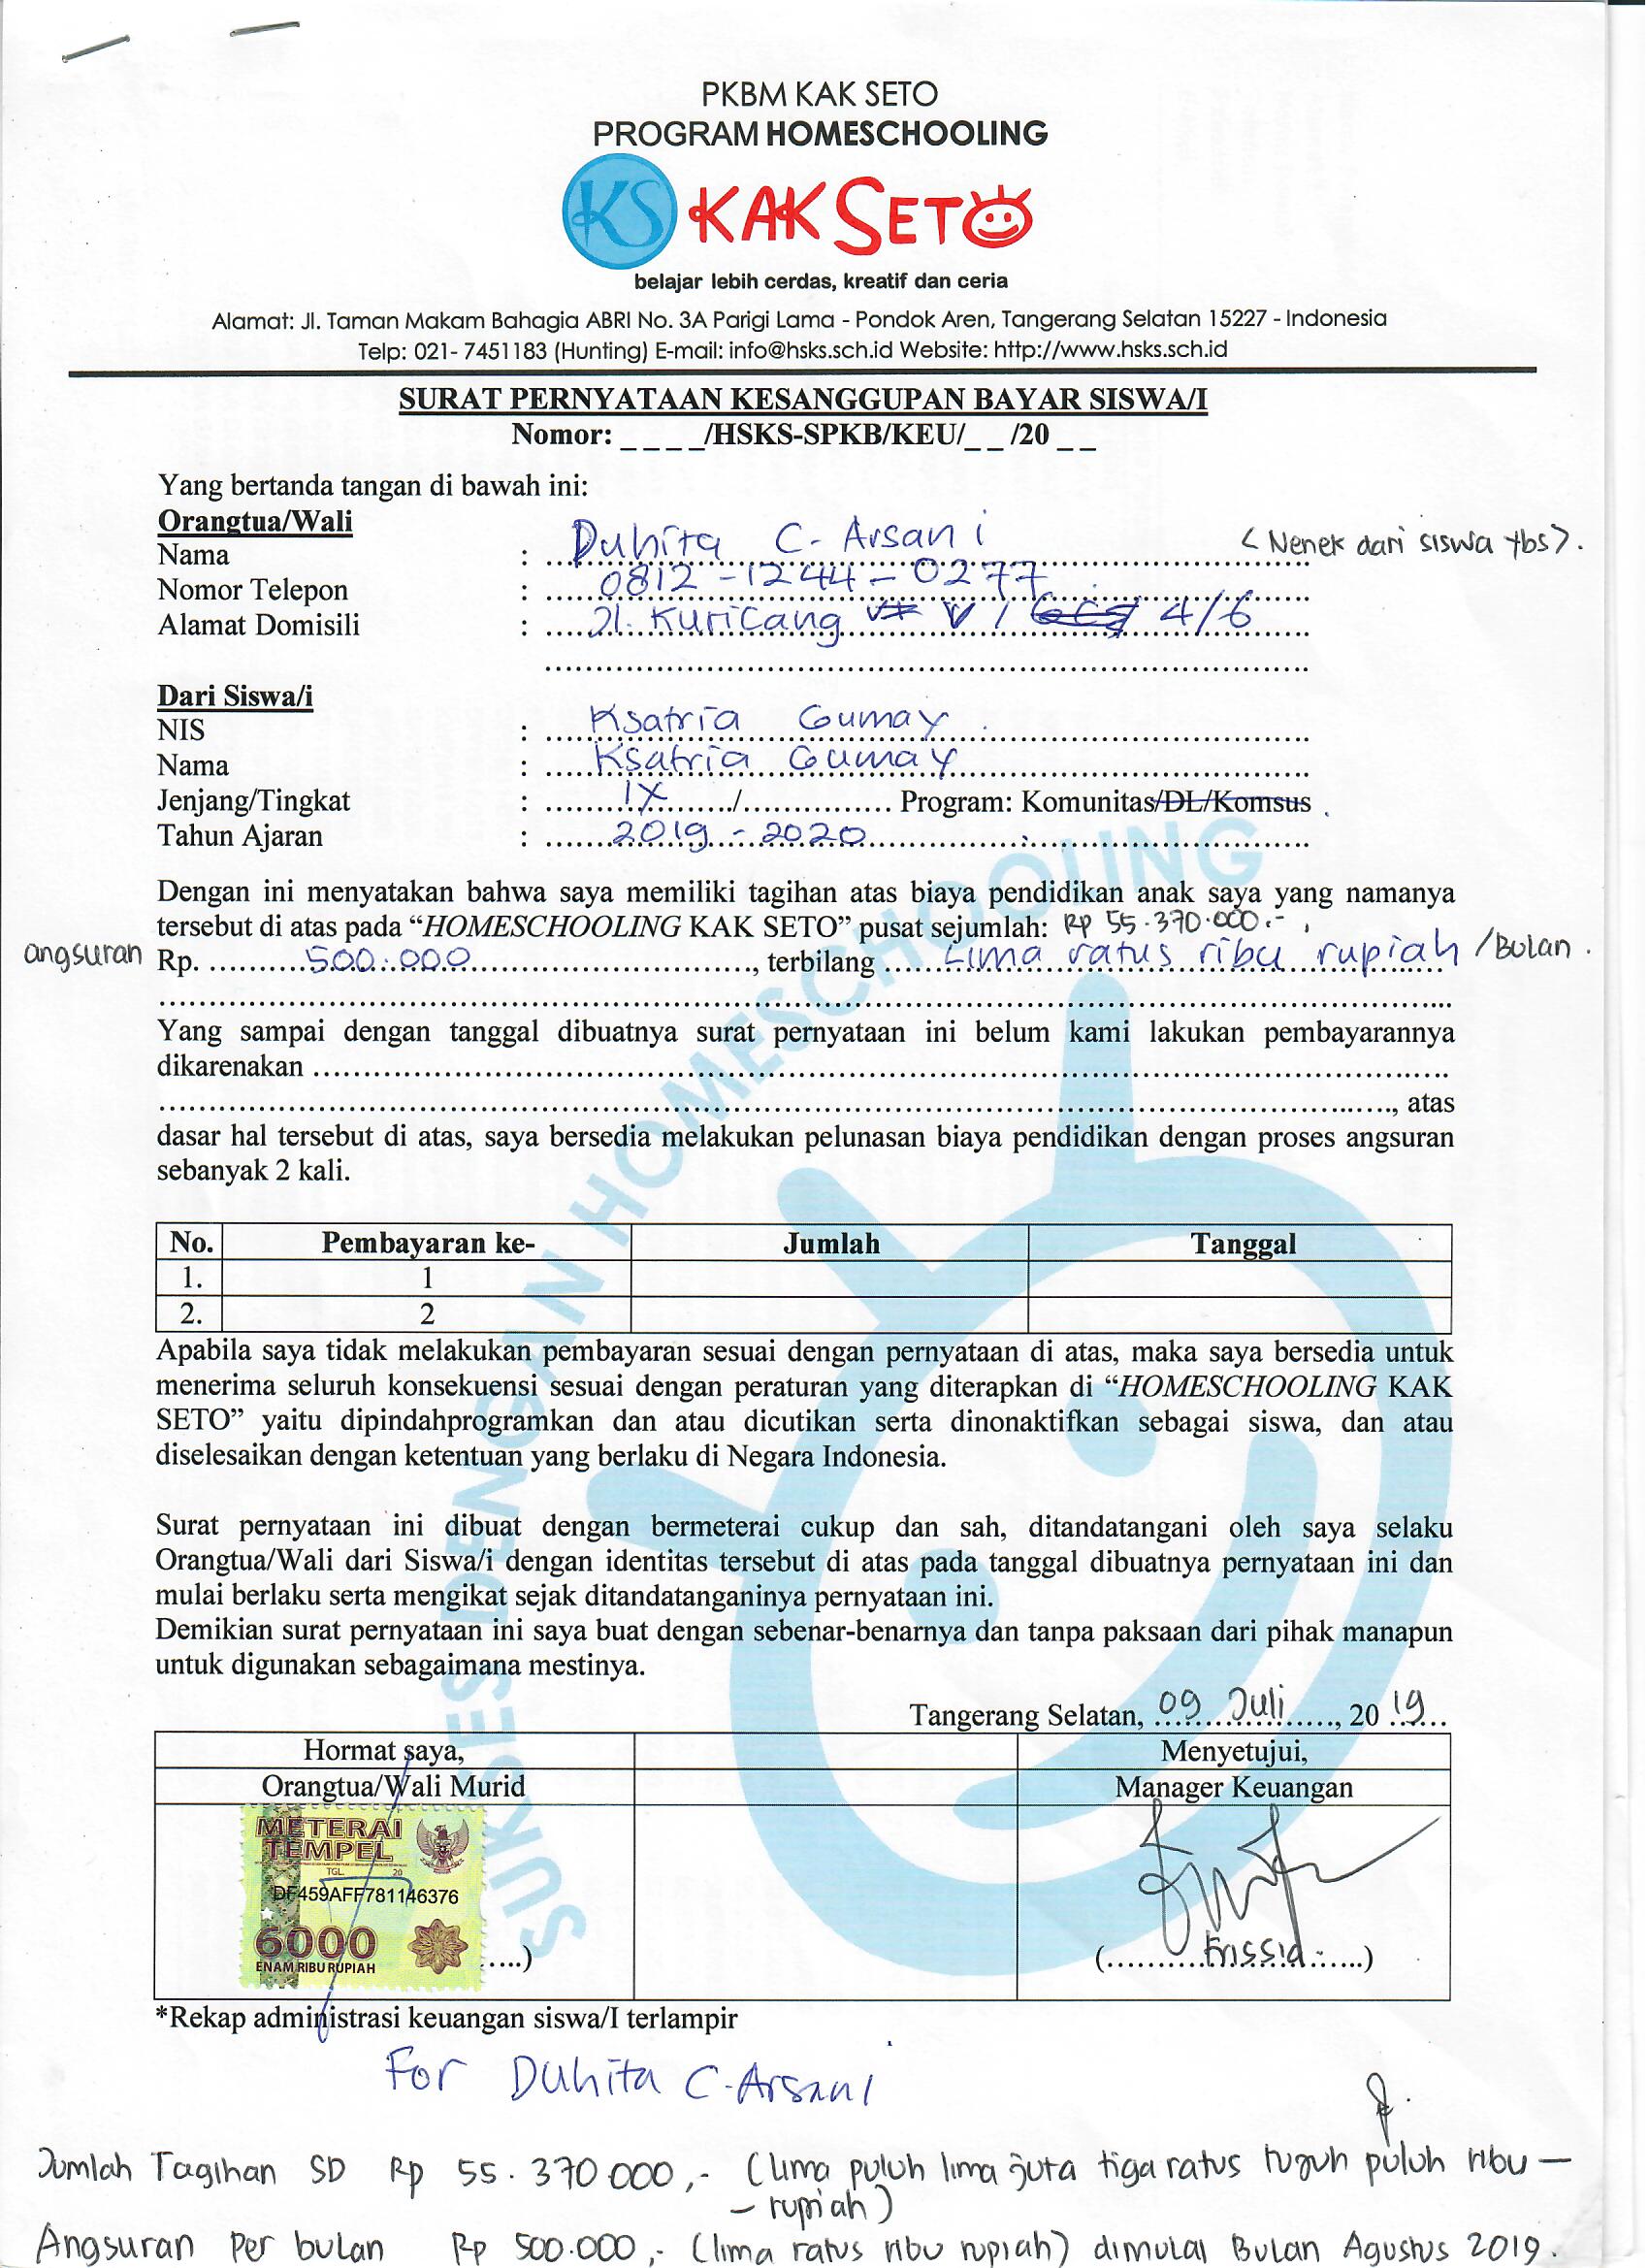 PKBM KAK SETO
PROGRAM HOMESCHOOLING
KS KAK SETO
belajar lebih cerdas, kreatif dan ceria
Alamat: Jl. Taman Makam Bahagia ABRI No. 3A Parigi Lama - Pondok Aren, Tangerang Selatan 15227 - Indonesia
Telp: 021- 7451183 (Hunting) E-mail: info@hsks.sch.id Website: http://www.hsks.sch.id
SURAT PERNYATAAN KESANGGUPAN BAYAR SISWA/I
Nomor: _ _ _ _/HSKS-SPKB/KEU/_ _ /20 _ _
Yang bertanda tangan di bawah ini:
Orangtua/Wali
Nama : Duhita C. Arsani (Nenek dari siswa tbs).
Nomor Telepon : 0812-1244-0277
Alamat Domisili : Jl. Kuricang V / 4/6
Dari Siswa/i
NIS : Ksatria Gumay
Nama : Ksatria Gumay
Jenjang/Tingkat : IX / Program: Komunitas/DL/Komsus
Tahun Ajaran : 2019 - 2020
Dengan ini menyatakan bahwa saya memiliki tagihan atas biaya pendidikan anak saya yang namanya
tersebut di atas pada “HOMESCHOOLING KAK SETO” pusat sejumlah: Rp 55.370.000.- ,
angsuran Rp. 500.000, terbilang Lima ratus ribu rupiah /Bulan .
Yang sampai dengan tanggal dibuatnya surat pernyataan ini belum kami lakukan pembayarannya
dikarenakan
, atas
dasar hal tersebut di atas, saya bersedia melakukan pelunasan biaya pendidikan dengan proses angsuran
sebanyak 2 kali.
No. Pembayaran ke- Jumlah Tanggal
1. 1
2. 2
Apabila saya tidak melakukan pembayaran sesuai dengan pernyataan di atas, maka saya bersedia untuk
menerima seluruh konsekuensi sesuai dengan peraturan yang diterapkan di “HOMESCHOOLING KAK
SETO” yaitu dipindahprogramkan dan atau dicutikan serta dinonaktifkan sebagai siswa, dan atau
diselesaikan dengan ketentuan yang berlaku di Negara Indonesia.
Surat pernyataan ini dibuat dengan bermeterai cukup dan sah, ditandatangani oleh saya selaku
Orangtua/Wali dari Siswa/i dengan identitas tersebut di atas pada tanggal dibuatnya pernyataan ini dan
mulai berlaku serta mengikat sejak ditandatanganinya pernyataan ini.
Demikian surat pernyataan ini saya buat dengan sebenar-benarnya dan tanpa paksaan dari pihak manapun
untuk digunakan sebagaimana mestinya.
Tangerang Selatan, 09 Juli, 20 19
Hormat saya, Menyetujui,
Orangtua/Wali Murid Manager Keuangan
METERAI
TEMPEL
TGL. 20
DF459AFF781146376
6000
ENAM RIBU RUPIAH
(Frissia)
*Rekap administrasi keuangan siswa/I terlampir
For Duhita C. Arsani
Jumlah Tagihan SD Rp 55.370000,- (lima puluh lima juta tiga ratus tujuh puluh ribu —
— rupiah)
Angsuran Per bulan Rp 500.000,- (lima ratus ribu rupiah) dimulai Bulan Agustus 2019.
SUKSES DENGAN HOMESCHOOLING